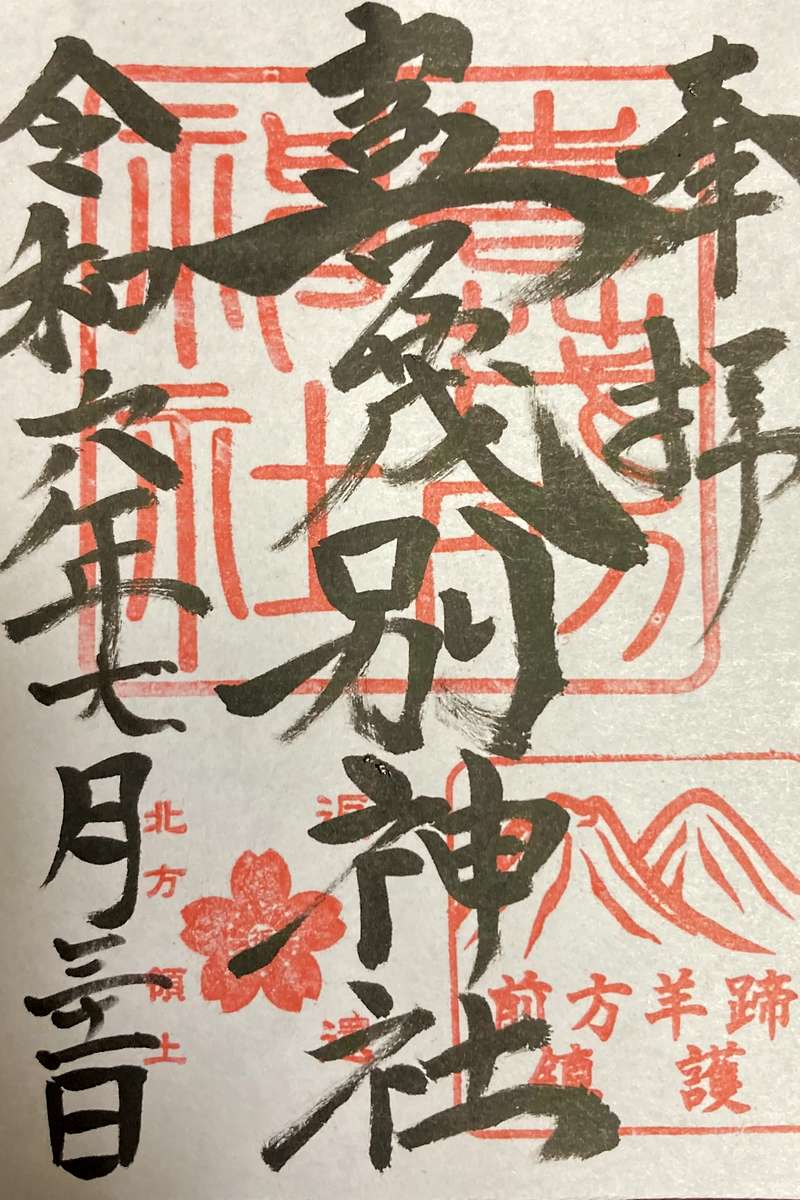 奉拝
喜茂別神社
令和六年七月三十一日
喜茂別
神社
前方羊蹄
鎮護
返還
北方領土